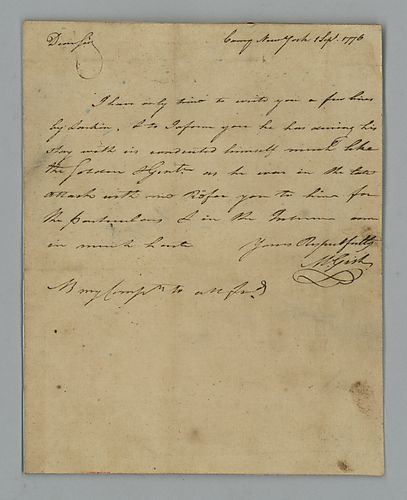 Dear Sir
Camp New York 1 Sep. 1776
I have only time to write you a few lines
by Larkin, & to Inform you he has during his
stay with us conducted himself much like
the Soldier & Gentn as he was in the late
attack with me Refer you to him for
the Particulars & in the Interim am
in much haste
Yours Respectfully
M Gist
NB my Compts to all Frds